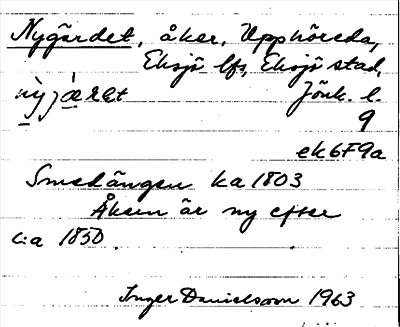 Nygärdet, åker, Upphöreda,
Eksjö lfs, Eksjö stad,
Jönk. l.
9
ek6F9a
Smedängen ka 1803
Åkern är ny efter
c:a 1850.
Inger Danielsson 1963